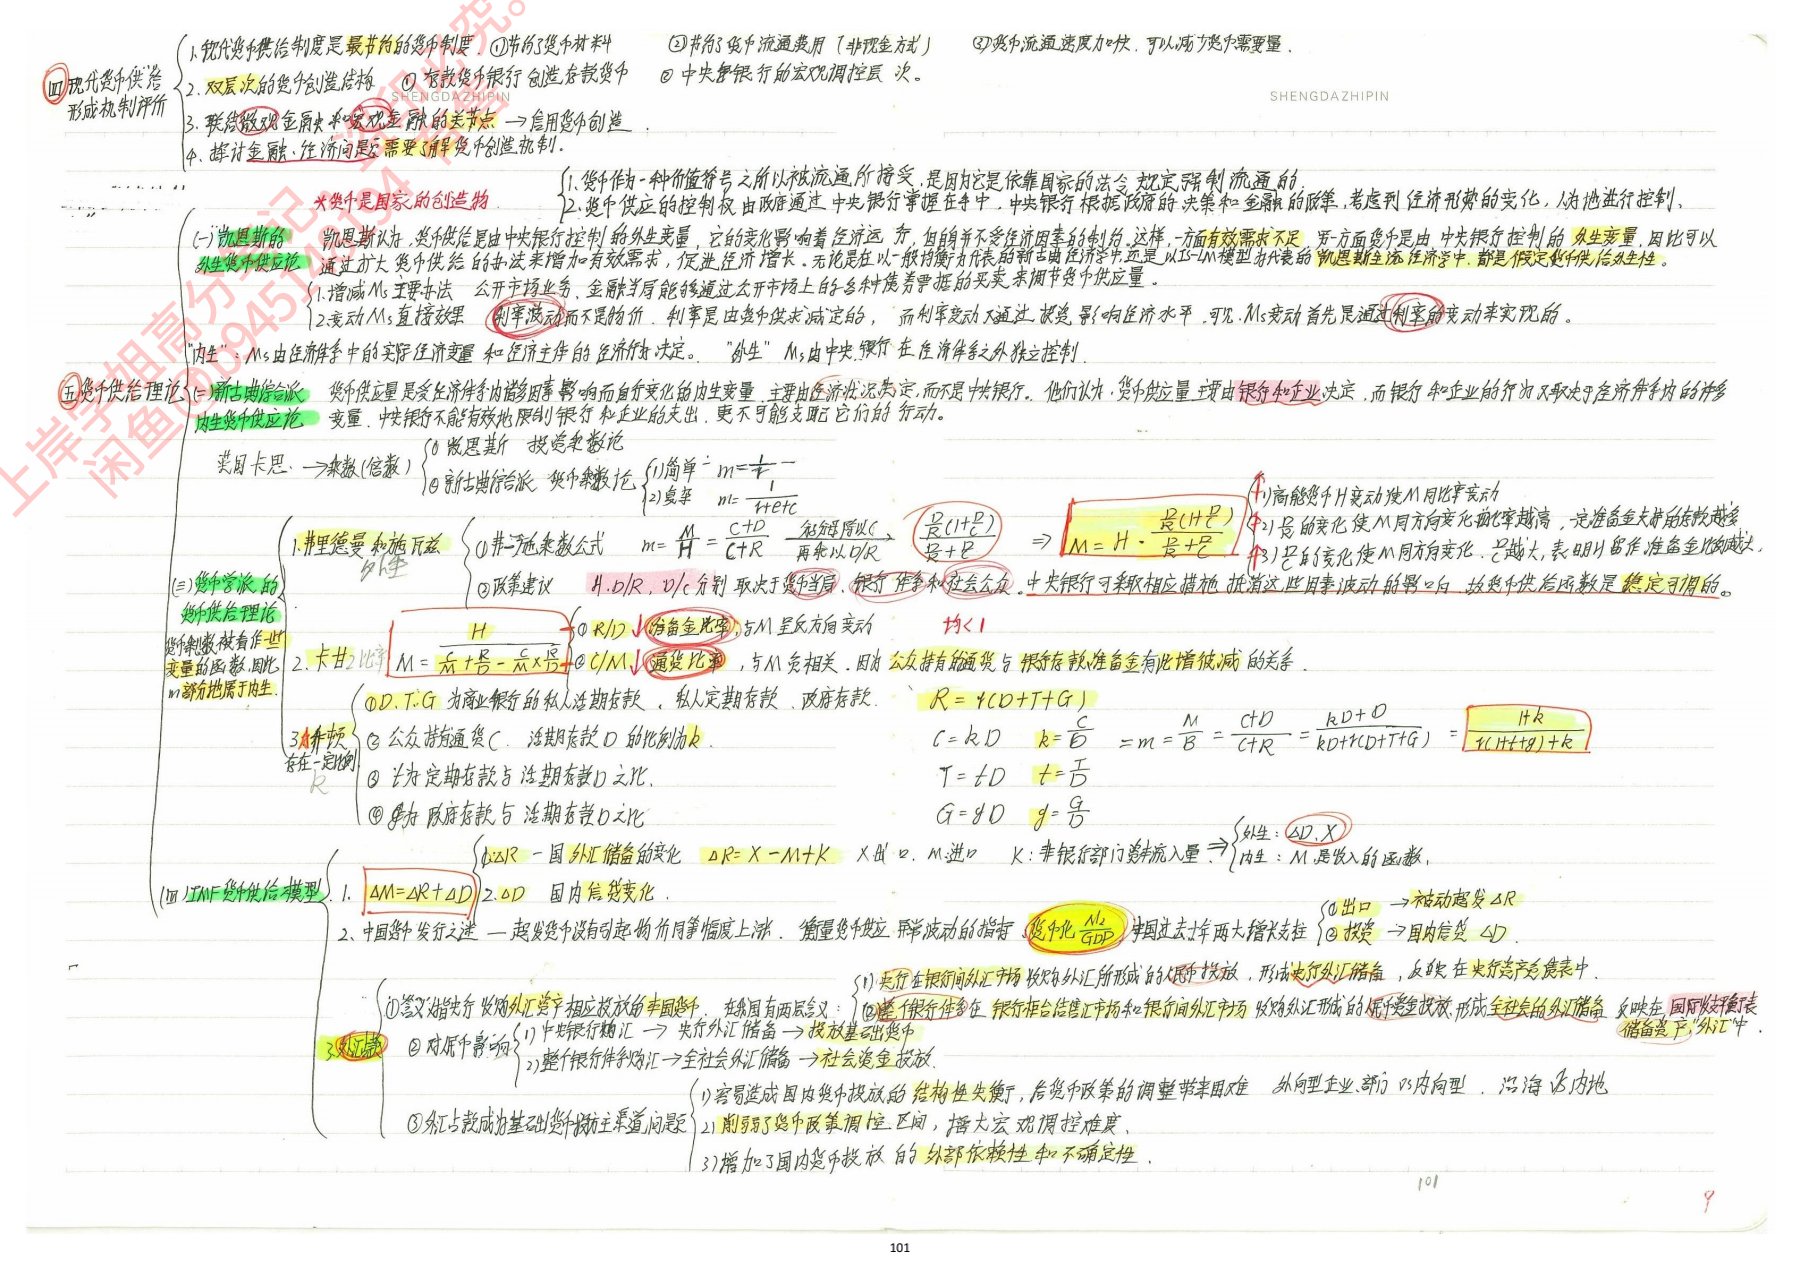 (四)现代货币供给形成机制评价
1.现代货币供给制度是最节约的货币制度. ①节约了货币材料 ②节约了货币流通费用(非现金方式) ③货币流通速度加快,可以减少货币需要量.
2.双层次的货币创造结构 ①存款货币银行创造存款货币 ②中央银行的宏观调控层次。
SHENGDAZHIPIN
SHENGDAZHIPIN
3.联结微观金融和宏观金融的关节点→信用货币创造.
4.探讨金融、经济问题需要了解货币创造机制.
货币是国家的创造物
1.货币作为一种价值符号之所以被流通所接受,是因为它是依靠国家的法令规定强制流通的.
2.货币供应的控制权由政府通过中央银行掌握在手中,中央银行根据政府的决策和金融的政策,考虑到经济形势的变化,人为地进行控制.
(五)货币供给理论
(一)凯恩斯的外生货币供应论
凯恩斯认为,货币供给是由中央银行控制的外生变量,它的变化影响着经济运行,但自身并不受经济因素的制约.这样,一方面有效需求不足,另一方面货币是由中央银行控制的外生变量,因此可以
通过扩大货币供给的办法来增加有效需求,促进经济增长.无论是在以一般均衡为代表的新古典经济学中还是以IS-LM模型为代表的凯恩斯主流经济学中,都是假定货币供给外生性。
1.增减Ms主要办法 公开市场业务.金融当局能够通过公开市场上的各种债券票据的买卖来调节货币供应量.
2.变动Ms直接效果 利率波动而不是物价.利率是由货币供求决定的, 而利率变动又通过投资影响经济水平.可见.Ms变动首先是通过利率的变动来实现的。
"内生":Ms由经济体系中的实际经济变量和经济主体的经济行为决定。 "外生" Ms由中央银行在经济体系之外独立控制.
(二)新古典综合派内生货币供应论
货币供应量是受经济体系内诸多因素影响而自行变化的内生变量,主要由经济状况决定,而不是中央银行.他们认为,货币供应量主要由银行和企业决定,而银行和企业的行为又取决于经济体系内的许多
变量.中央银行不能有效地限制银行和企业的支出,更不可能支配它们的行动。
英国卡恩→乘数(倍数)
①凯恩斯 投资乘数论
②新古典综合派 货币乘数论 (1)简单 m=1/r
(2)复杂 m=1/(r+e+c)
(三)货币学派的货币供给理论
货币乘数被看作一些变量的函数.因此m部分地属于内生.
1.弗里德曼和施瓦兹
外生
①弗-施乘数公式 m=M/H=(C+D)/(C+R) 分子分母除以C 再乘以D/R D/R(1+D/C)/(D/R+D/C) ⇒ M=H·D/R(1+D/C)/(D/R+D/C)
1)高能货币H变动使M同比率变动
2)D/R的变化使M同方向变化.
3)D/C的变化使M同方向变化.
②政策建议 H.D/R,D/C分别取决于货币当局、银行体系和社会公众.中央银行可采取相应措施抵消这些因素波动的影响,故货币供给函数是稳定可测的。
2.卡甘
2比率
M=H/(C/M+R/D-C/M×R/D)
①R/D↓准备金比率,与M呈反方向变动 均<1
②C/M↓通货比率,与M负相关.因为公众持有的通货与银行存款准备金有此增彼减的关系.
3.乔顿
存在一定比例
k
①D.T.G 为商业银行的私人活期存款.私人定期存款.政府存款. R=r(D+T+G)
②公众持有通货C.活期存款D的比例为k. C=kD k=C/D ⇒m=M/B=(C+D)/(C+R)=(kD+D)/(kD+r(D+T+G))=(1+k)/(r(1+t+g)+k)
③t为定期存款与活期存款D之比. T=tD t=T/D
④g为政府存款与活期存款D之比 G=gD g=G/D
(四)IMF货币供给模型
1. ΔM=ΔR+ΔD
1.ΔR 一国外汇储备的变化 ΔR=X-M+K X出口.M进口 K:非银行部门资本流入量. ⇒ 外生:ΔD.X
内生:M是收入的函数.
2.ΔD 国内信贷变化.
2.中国货币发行之迷—超发货币没有引起物价同等幅度上涨.衡量货币供应异常波动的指标:货币化M2/GDP,中国过去十年两大增长支柱 ①出口→被动超发ΔR
②投资→国内信贷ΔD.
3.外汇占款
①含义:指央行收购外汇资产相应投放的本国货币.在我国有两层含义:
(1)央行在银行间外汇市场收购外汇所形成的人民币投放,形成央行外汇储备,反映在央行资产负债表中.
(2)整个银行体系在银行柜台结售汇市场和银行间外汇市场收购外汇形成的人民币资金投放,形成全社会的外汇储备 反映在国际收支平衡表储备资产"外汇"中.
②对本币影响
1)中央银行购汇→央行外汇储备→投放基础货币
2)整个银行体系购汇→全社会外汇储备→社会资金投放.
③外汇占款成为基础货币投放主渠道问题
1)容易造成国内货币投放的结构性失衡,给货币政策的调整带来困难 外向型企业、部门VS内向型.沿海VS内地
2)削弱了货币政策调控区间,增大宏观调控难度.
3)增加了国内货币投放的外部依赖性和不确定性.
101
9
101